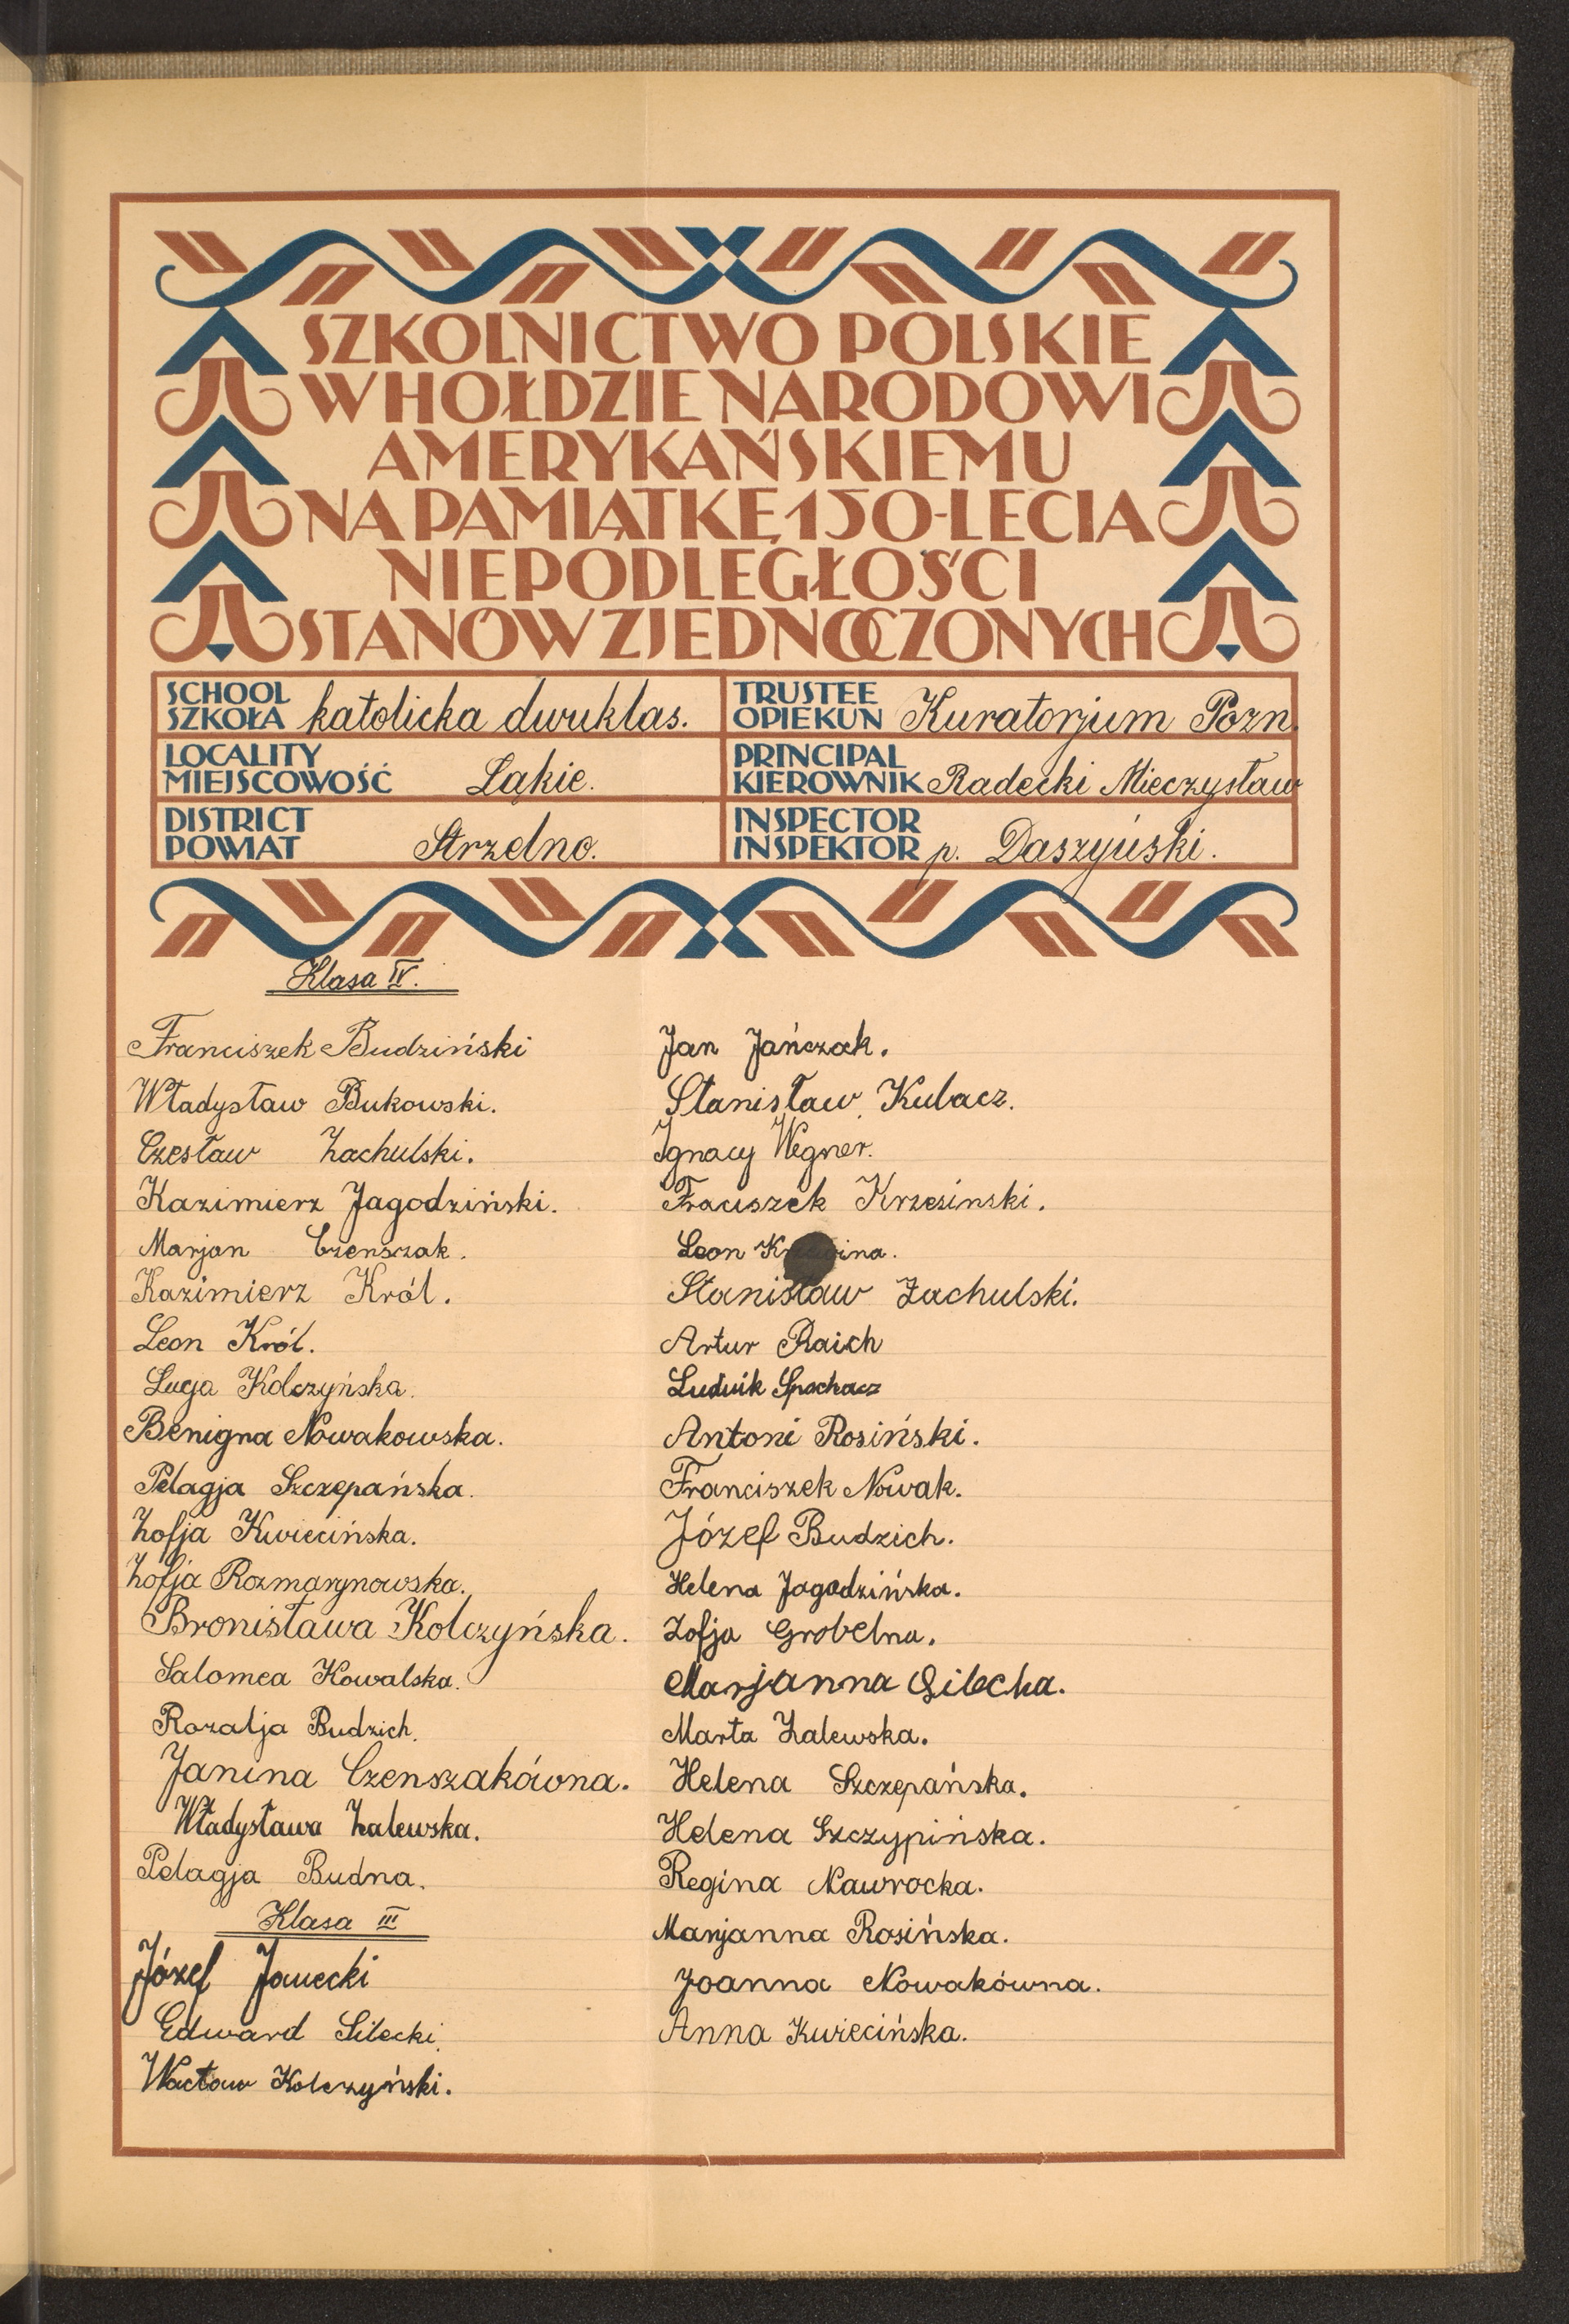 SZKOLNICTWO POLSKIE
W HOŁDZIE NARODOWI
AMERYKAŃSKIEMU
NA PAMIĄTKĘ 150-LECIA
NIEPODLEGŁOŚCI
STANÓW ZJEDNOCZONYCH
SCHOOL
SZKOŁA katolicka dwuklas.
TRUSTEE
OPIEKUN Kuratorjum Pozn.
LOCALITY
MIEJSCOWOŚĆ Łąkie.
PRINCIPAL
KIEROWNIK Radecki Mieczysław
DISTRICT
POWIAT Strzelno.
INSPECTOR
INSPEKTOR p. Daszyński.
Klasa IV.
Franciszek Budziński
Władysław Bukowski.
Czesław Zachulski.
Kazimierz Jagodziński.
Marjan Czenszak.
Kazimierz Król.
Leon Król.
Kolczyńska.
Benigna Nowakowska.
Pelagja Szczepańska.
Zofja Kwiecińska.
Zofja Rozmarynowska.
Bronisława Kolczyńska.
Salomea Kowalska.
Rozalja Budzich.
Janina Czenszakówna.
Władysława Zalewska.
Pelagja Budna.
Klasa III
Józef Jawecki
Edward Silecki.
Wacław Kolczyński.
Jan Jańczak.
Stanisław Kubacz.
Ignacy Wegner.
Fraciszek Krzesinski.
Leon
Stanisław Zachulski.
Artur Raich
Ludwik Spochacz
Antoni Rosiński.
Franciszek Nowak.
Józef Budzich.
Helena Jagodzińska.
Zofja Grobelna.
Marjanna Silecka.
Marta Zalewska.
Helena Szczepańska.
Helena Szczypińska.
Regina Nawrocka.
Marjanna Rosińska.
Joanna Nowakówna.
Anna Kwiecińska.